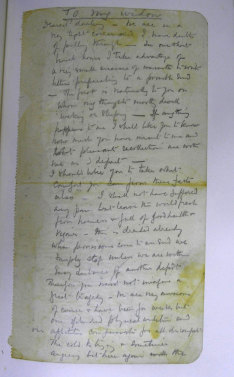 To my widow
Dearest darling – we are in a
very tight corner and I have doubts
of pulling through – In our short
lunch hours I take advantage of
a very small measure of warmth to write
letters preparatory to a possible end
– The first is naturally to you on
whom my thoughts mostly dwell
waking or sleeping – If anything
happens to me I shall like you to know
how much you have meant to me and
that pleasant recollections are with
me as I depart –
I should like you to take what
comfort you can from these facts
also – I shall not have suffered
any pain but leave the world fresh
from harness & full of good health &
vigour – this is decided already
when provisions come to an end we
simply stop unless we are within
easy distance of another depot
Therefore you must not imagine a
great tragedy – we are very anxious
of course & have been for weeks but
our splendid physical condition and
our appetites compensate for all discomfort
The cold is biting & sometimes
angering but here again